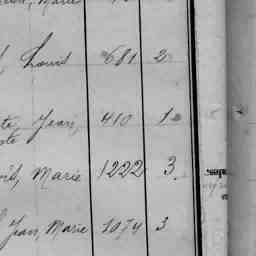 Marie
Louis 681 2
Jean, 410 1
Marie 1222 3
Jean, Marie 1074 3